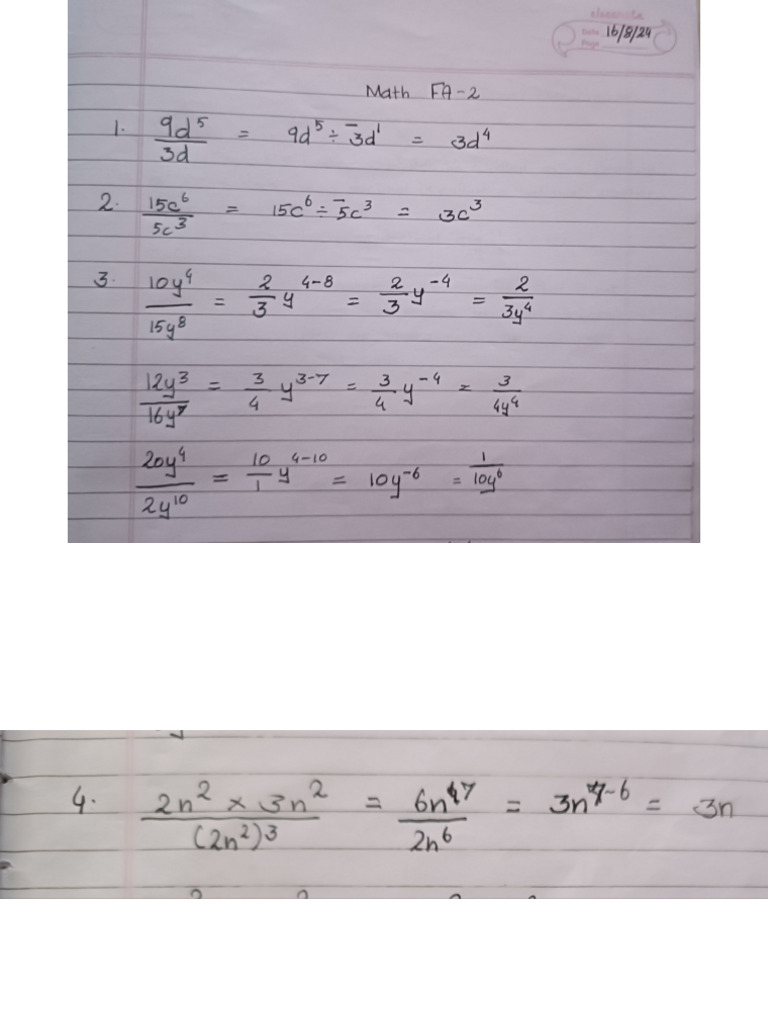 elegante
Date 16/8/24
Page
Math FA-2
1. 9d⁵/3d = 9d⁵ ÷ ‾3d¹ = 3d⁴
2. 15c⁶/5c³ = 15c⁶ ÷ ‾5c³ = 3c³
3. 10y⁴/15y⁸ = 2/3 y⁴⁻⁸ = 2/3 y⁻⁴ = 2/3y⁴
12y³/16y⁷ = 3/4 y³⁻⁷ = 3/4 y⁻⁴ = 3/4y⁴
20y⁴/2y¹⁰ = 10/1 y⁴⁻¹⁰ = 10y⁻⁶ = 1/10y⁶
4. 2n² × 3n²/(2n²)³ = 6n⁷/2n⁶ = 3n⁷⁻⁶ = 3n